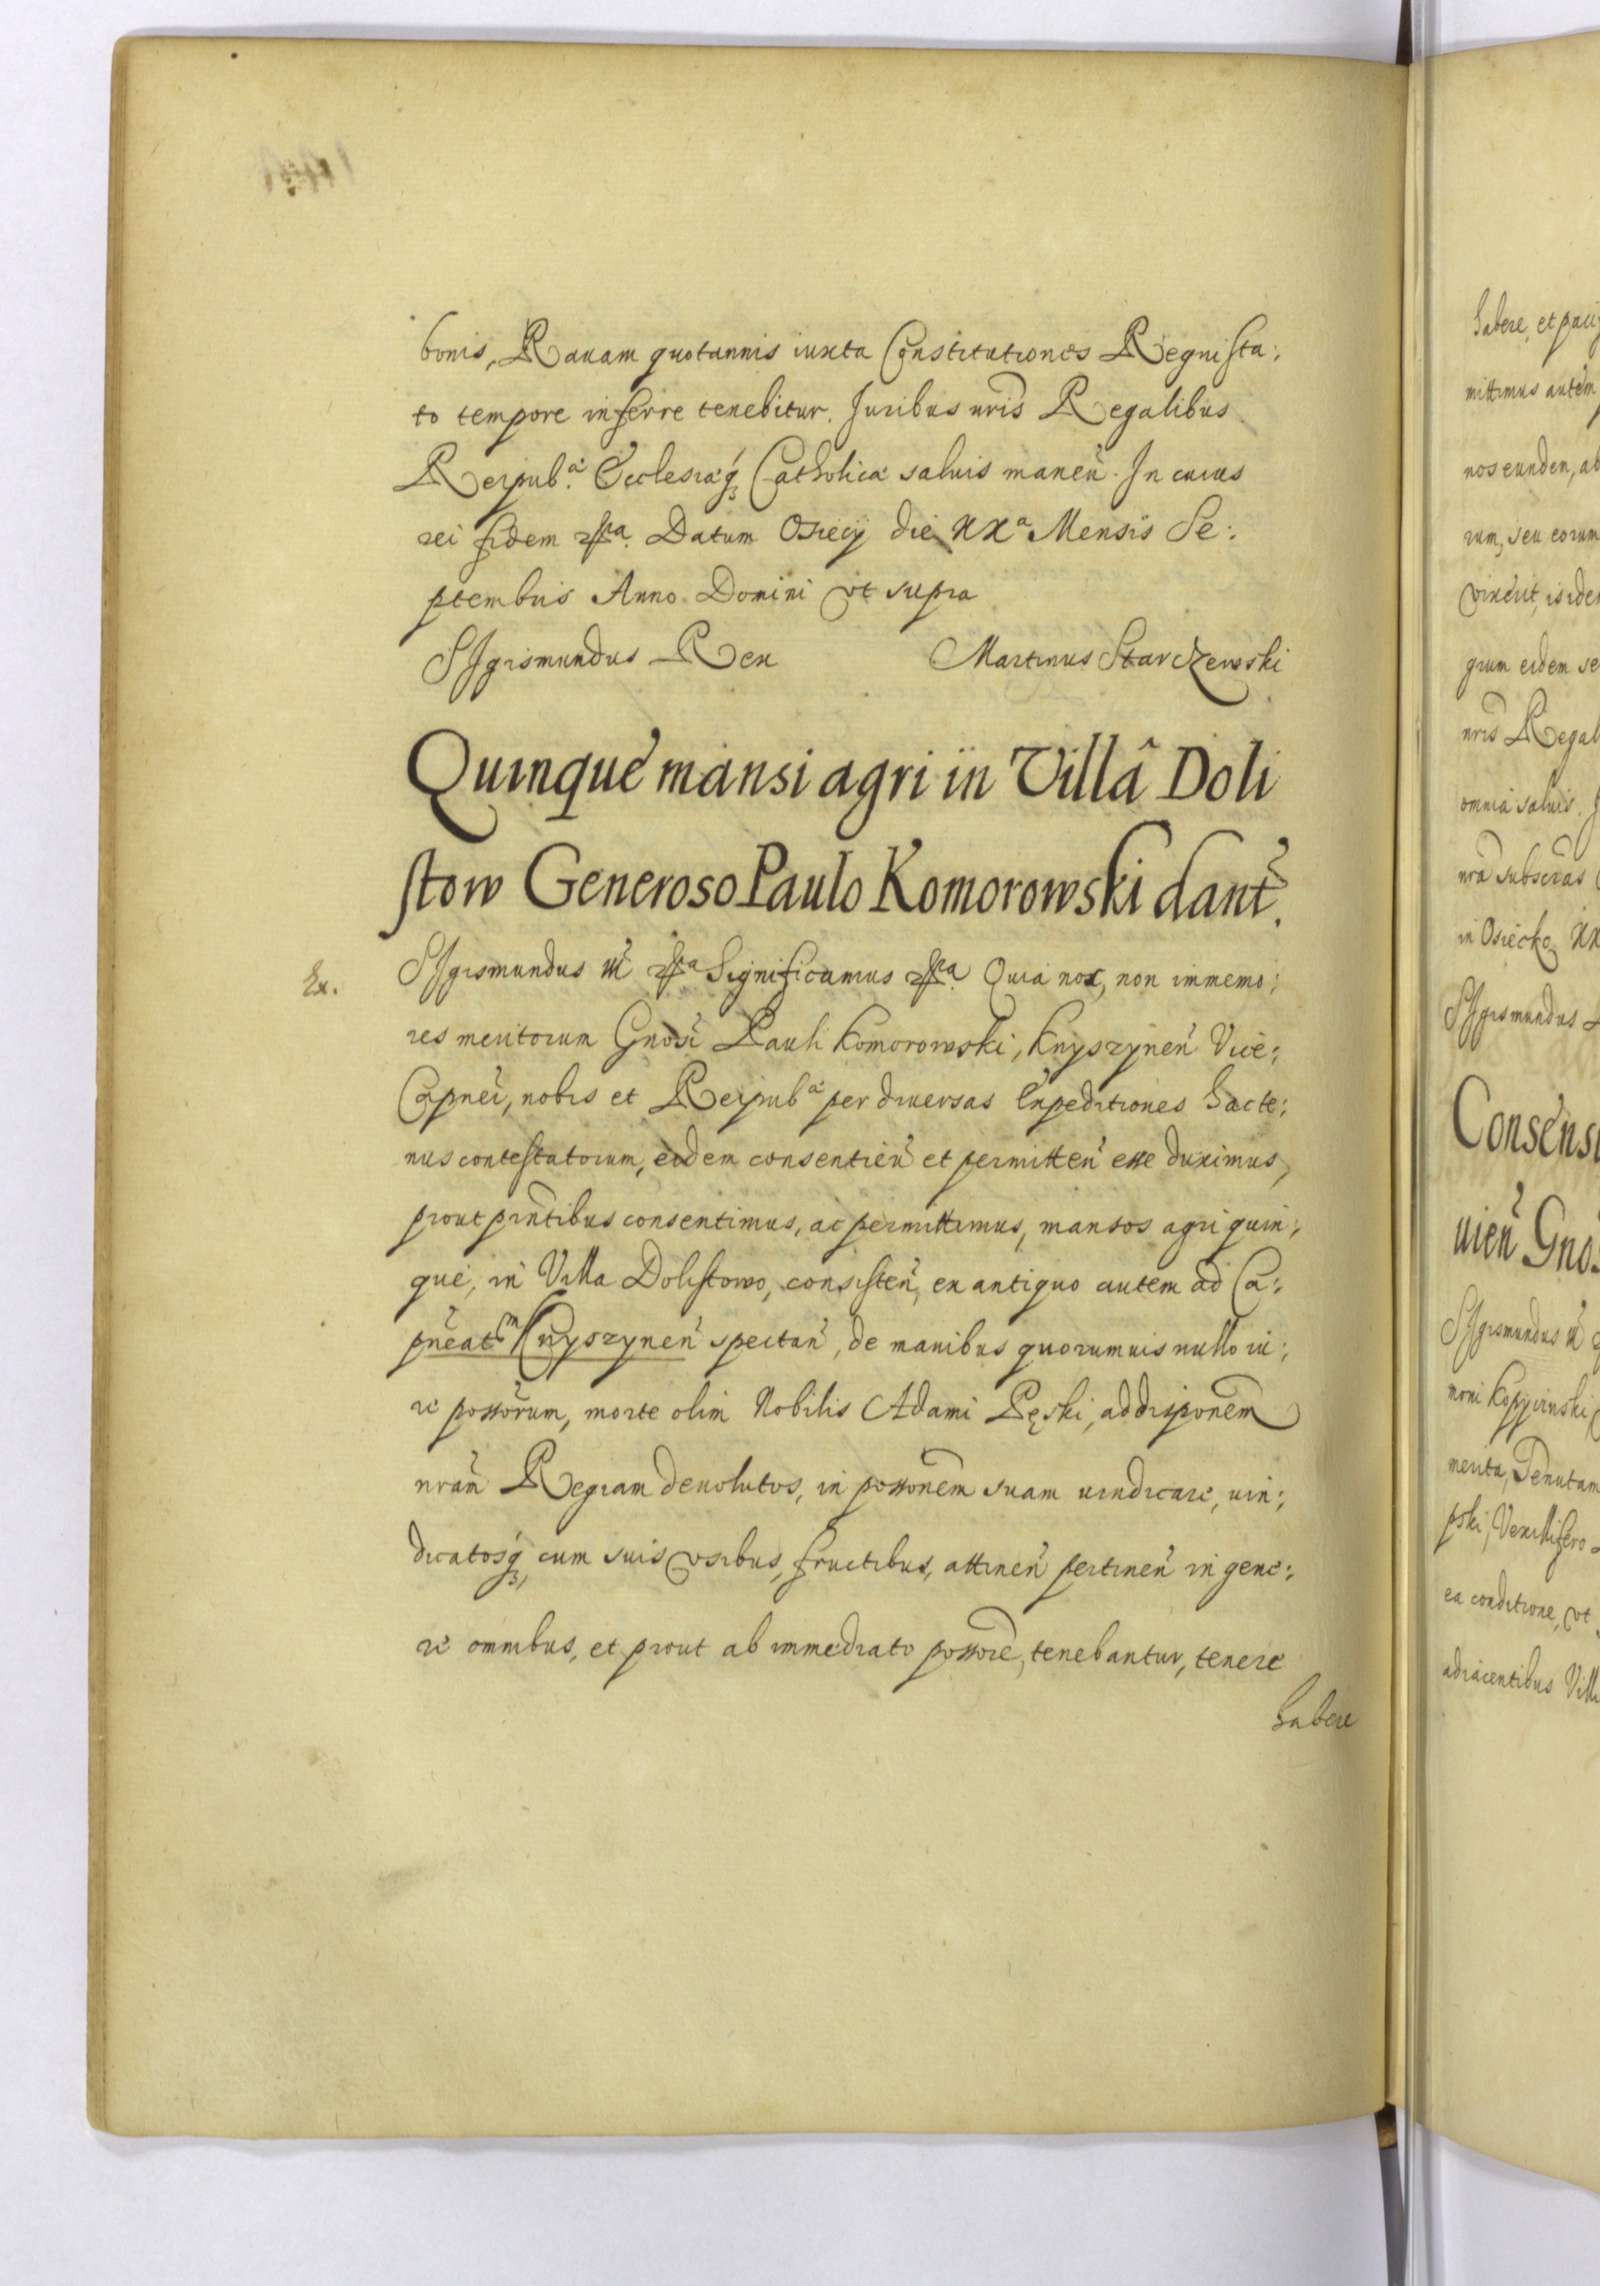 bonis, Rauam quotannis iuxta Constitutiones Regni sta:
to tempore inferre tenebitur. Juribus nr̃is Regalibus
Reipub.ᵃᵉ Ecclesiæq́ꝫ Catholicæ saluis maneñ. In cuius
rei fidem etca. Datum Osiecÿ die XXᵃ Mensis Se:
ptembris Anno Domini vt supra
SIgismundus Rex Martinus Starczewski
Quinque mansi agri in Villâ Doli
stow Generoso Paulo Komorowski dant̃.
Ex.
SIgismundus III etca Significamus etca. Quia nos, non immemo:
res meritorum Gnõsi Pauli Komorowski, Knyszyneñ Vice:
Capnei, nobis et Reipubᵃᵉ per diuersas Expeditiones hacte:
nus contestatorum, eidem consentieñ et permitteñ esse duximus,
prout pr̃ntibus consentimus, ac permittimus, mansos agri quin:
que, in Villa Dolistowo, consisteñ, ex antiquo autem ad Ca:
pneatᵐ Knyszyneñ spectañ, de manibus quorumuis nullo iu:
re possõrum, morte olim Nobilis Adami Pęski, ad disponem̃
nrãm Regiam deuolutos, in possonem̃ suam uindicare, uin:
dicatosq́ꝫ, cum suis vsibus, fructibus, attineñ pertineñ in gene:
re omnibus, et prout ab immediato possorẽ, tenebantur, tenere
habere
habere, et
mittimus autem
nos eunden, ab
rum, seu eorum
vixerit, is
gium eidem
nr̃is
omnia saluis.
nrã subscrãs
in Osiecko XX
SIgismundus
Consens
uieñ Gno
SIgismundus III
moni
merita,
pski, Vexillifero
ea conditione, vt
adiacentibus